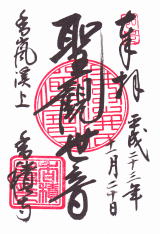 奉拝
平成二十三年
十一月二十日
聖観世音
香嵐渓上
香積寺